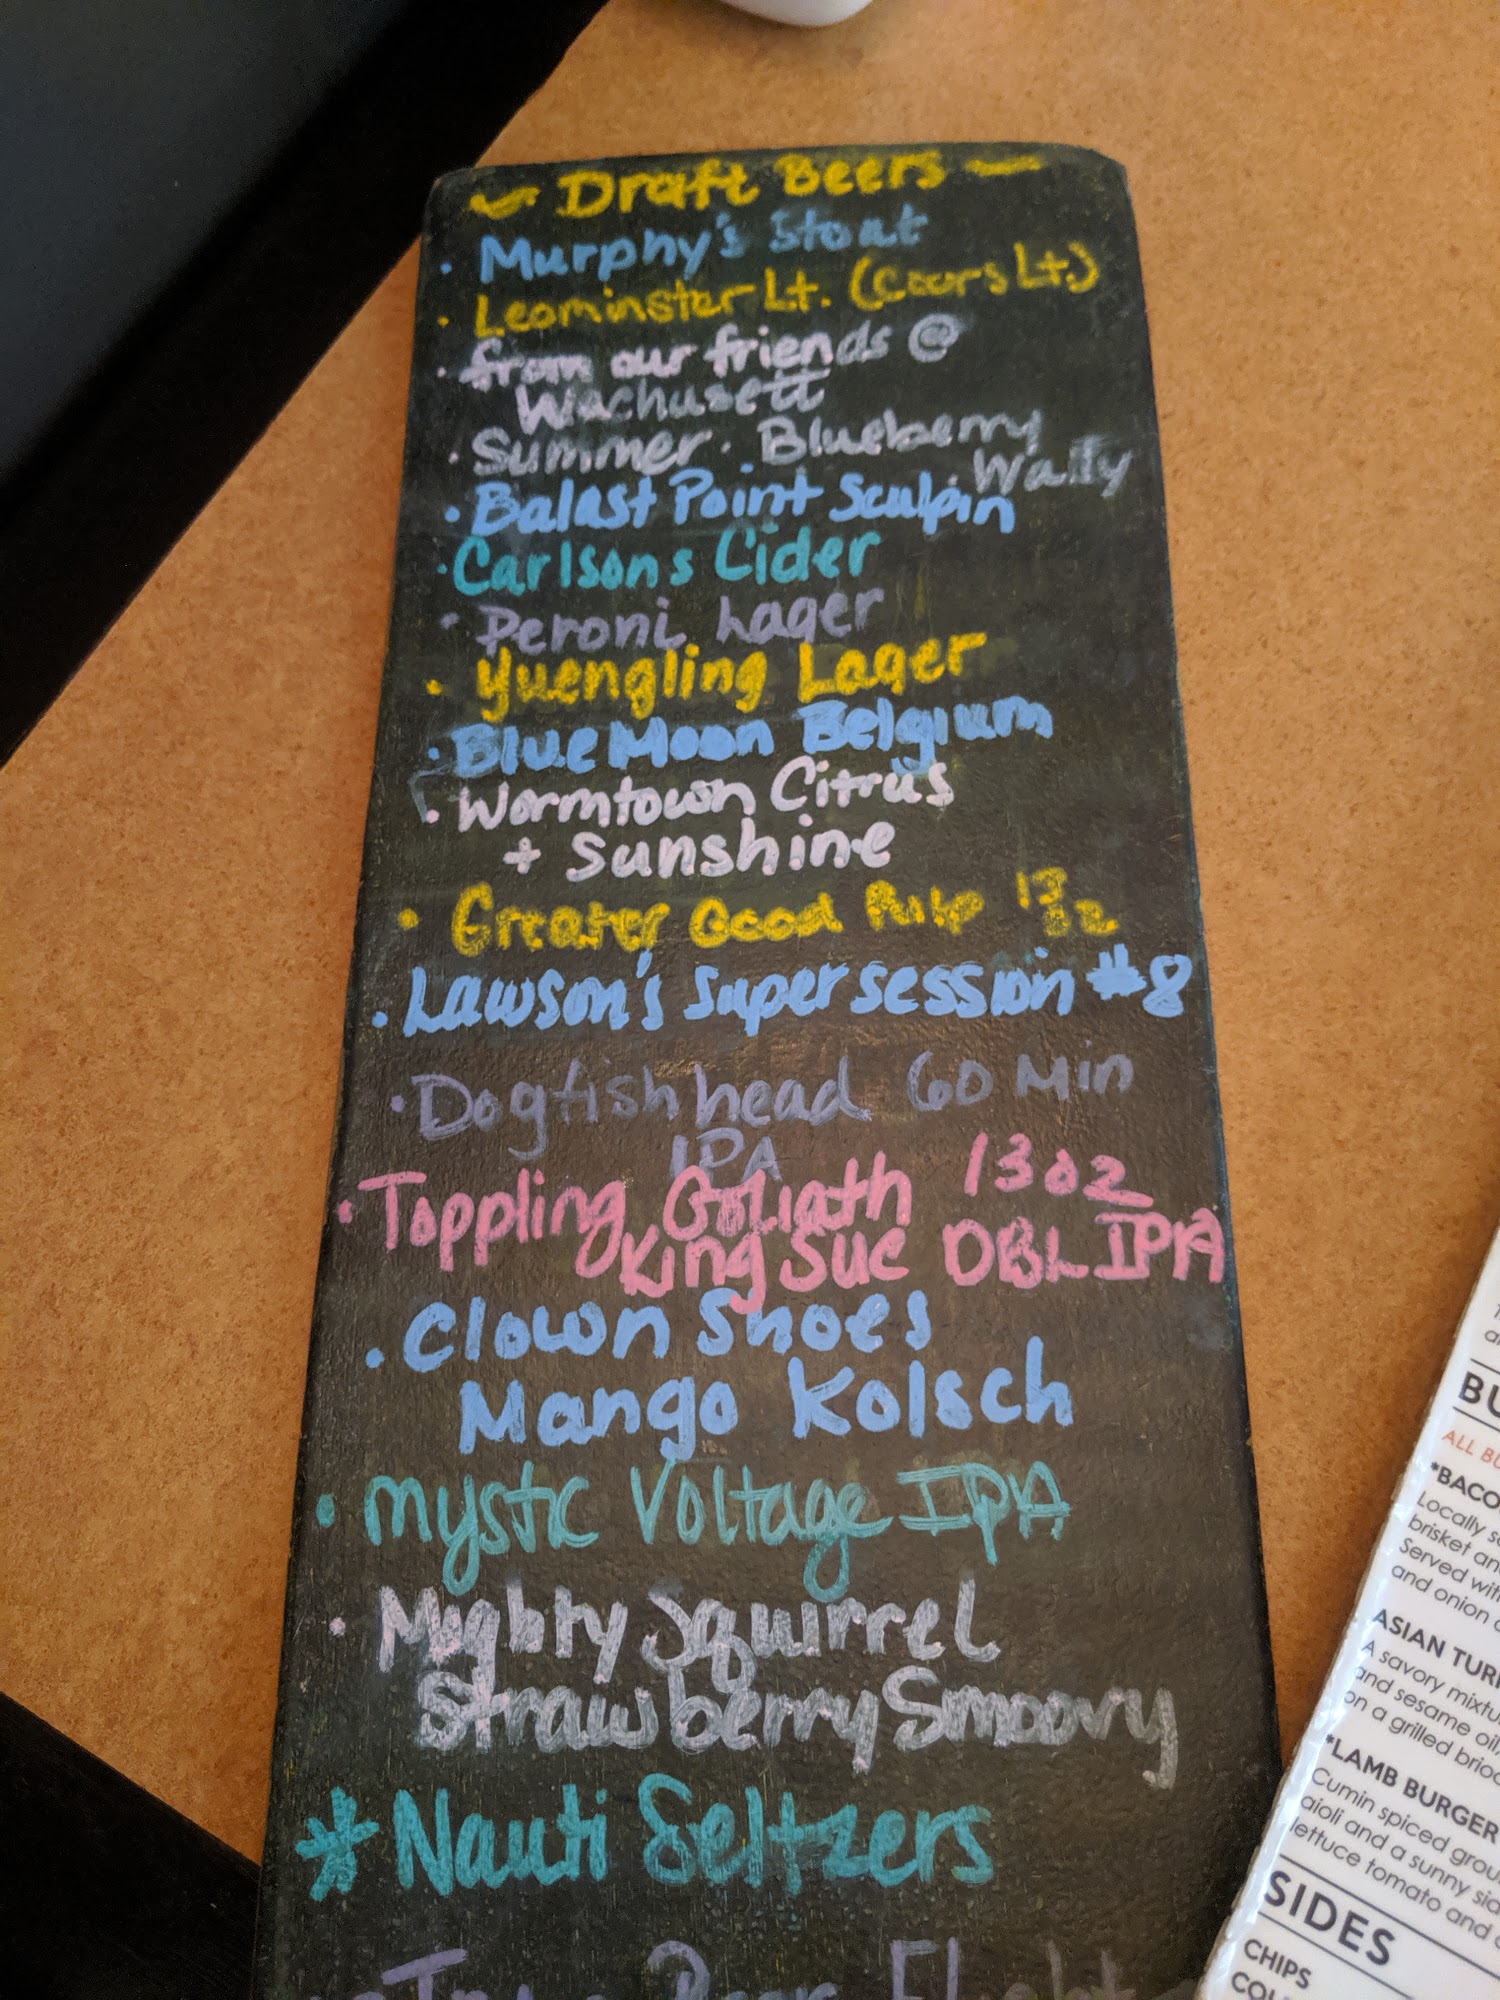 Draft Beers
· Murphy's Stout
· Leominster Lt. (Coors Lt.)
· from our friends @
Wachusett
· Summer · Blueberry
· Wally
· Balast Point Sculpin
· Carlsons Cider
· Peroni Lager
· Yuengling Lager
· Blue Moon Belgium
· Wormtown Citrus
+ Sunshine
· Greater Good Pulp 13oz
· Lawson's super session #8
· Dogfishhead 60 Min
IPA
· Toppling Goliath 13oz
King Sue DBL IPA
· Clown Shoes
Mango Kolsch
· Mystic Voltage IPA
· Mighty Squirrel
Strawberry Smoovy
* Nauti Seltzers
BU
ALL BU
*BACO
Locally s
brisket an
Served wit
and onion
ASIAN TUR
A savory mixtu
and sesame oil,
on a grilled brioc
*LAMB BURGER
Cumin spiced grou
aioli and a sunny sid
lettuce tomato and
SIDES
CHIPS